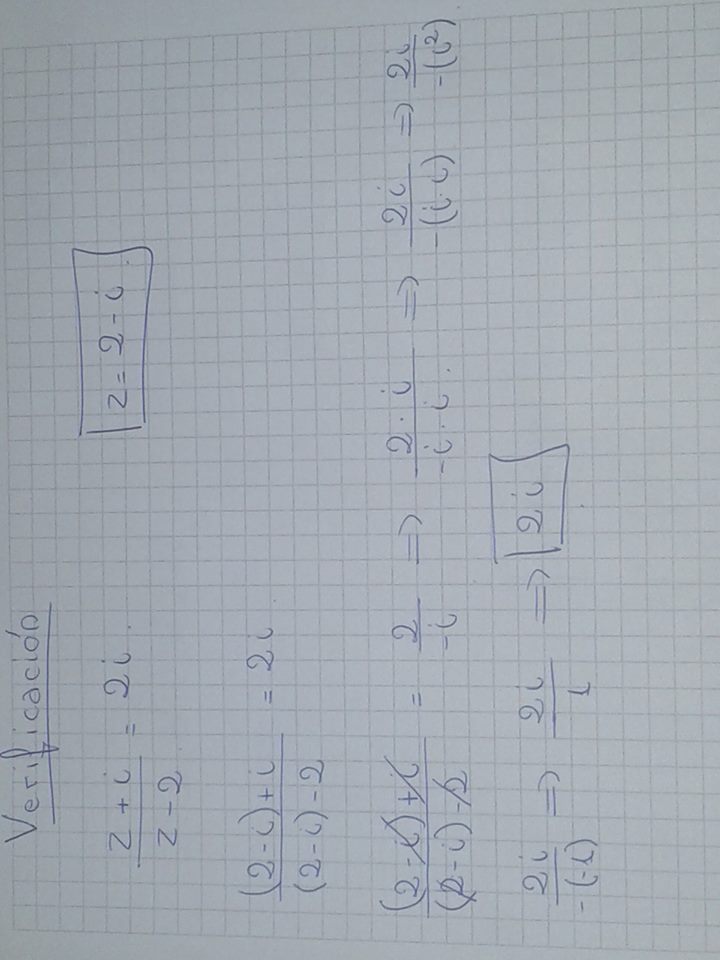 Verificación
(z + i)/(z - 2) = 2i. z = 2 - i.
((2 - i) + i)/((2 - i) - 2) = 2i
((2 - i) + i)/((2 - i) - 2) = 2/(-i) ⇒ (2 · i)/(-i · i) ⇒ 2i/(-(i · i)) ⇒ 2i/(-(i²))
2i/(-(-1)) ⇒ 2i/1 ⇒ 2i